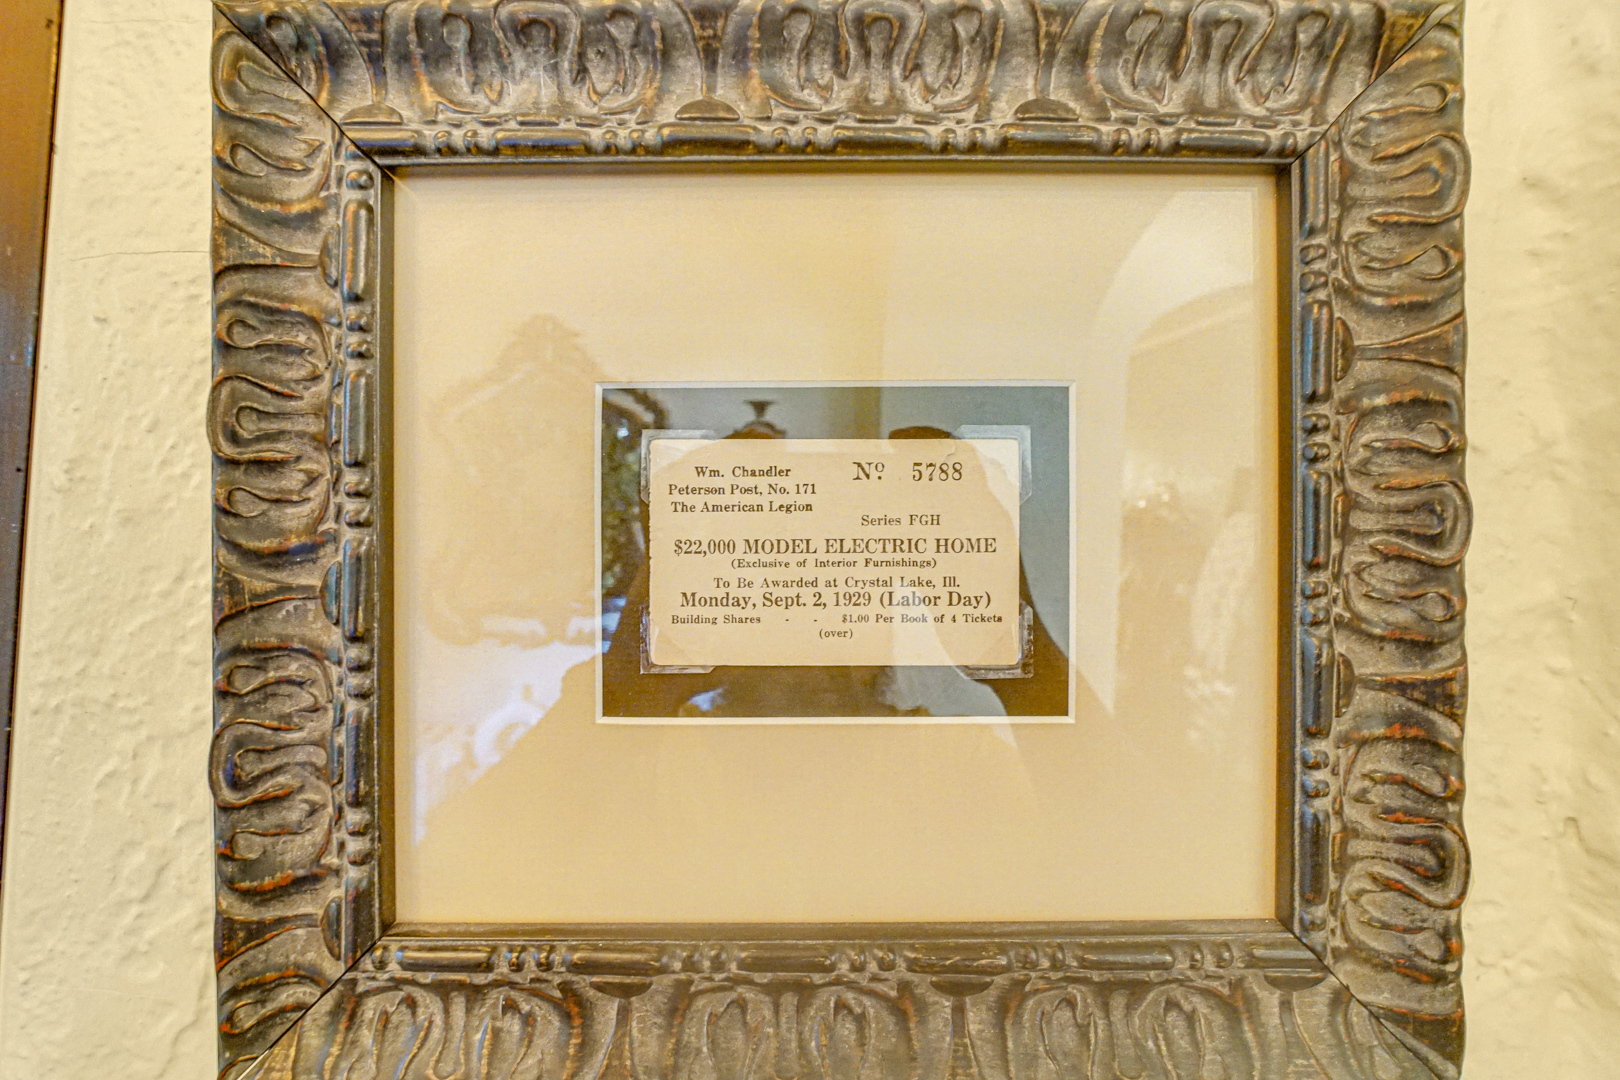 Wm. Chandler
Peterson Post, No. 171
The American Legion
Nº 5788
Series FGH
$22,000 MODEL ELECTRIC HOME
(Exclusive of Interior Furnishings)
To Be Awarded at Crystal Lake, Ill.
Monday, Sept. 2, 1929 (Labor Day)
Building Shares - - $1.00 Per Book of 4 Tickets
(over)